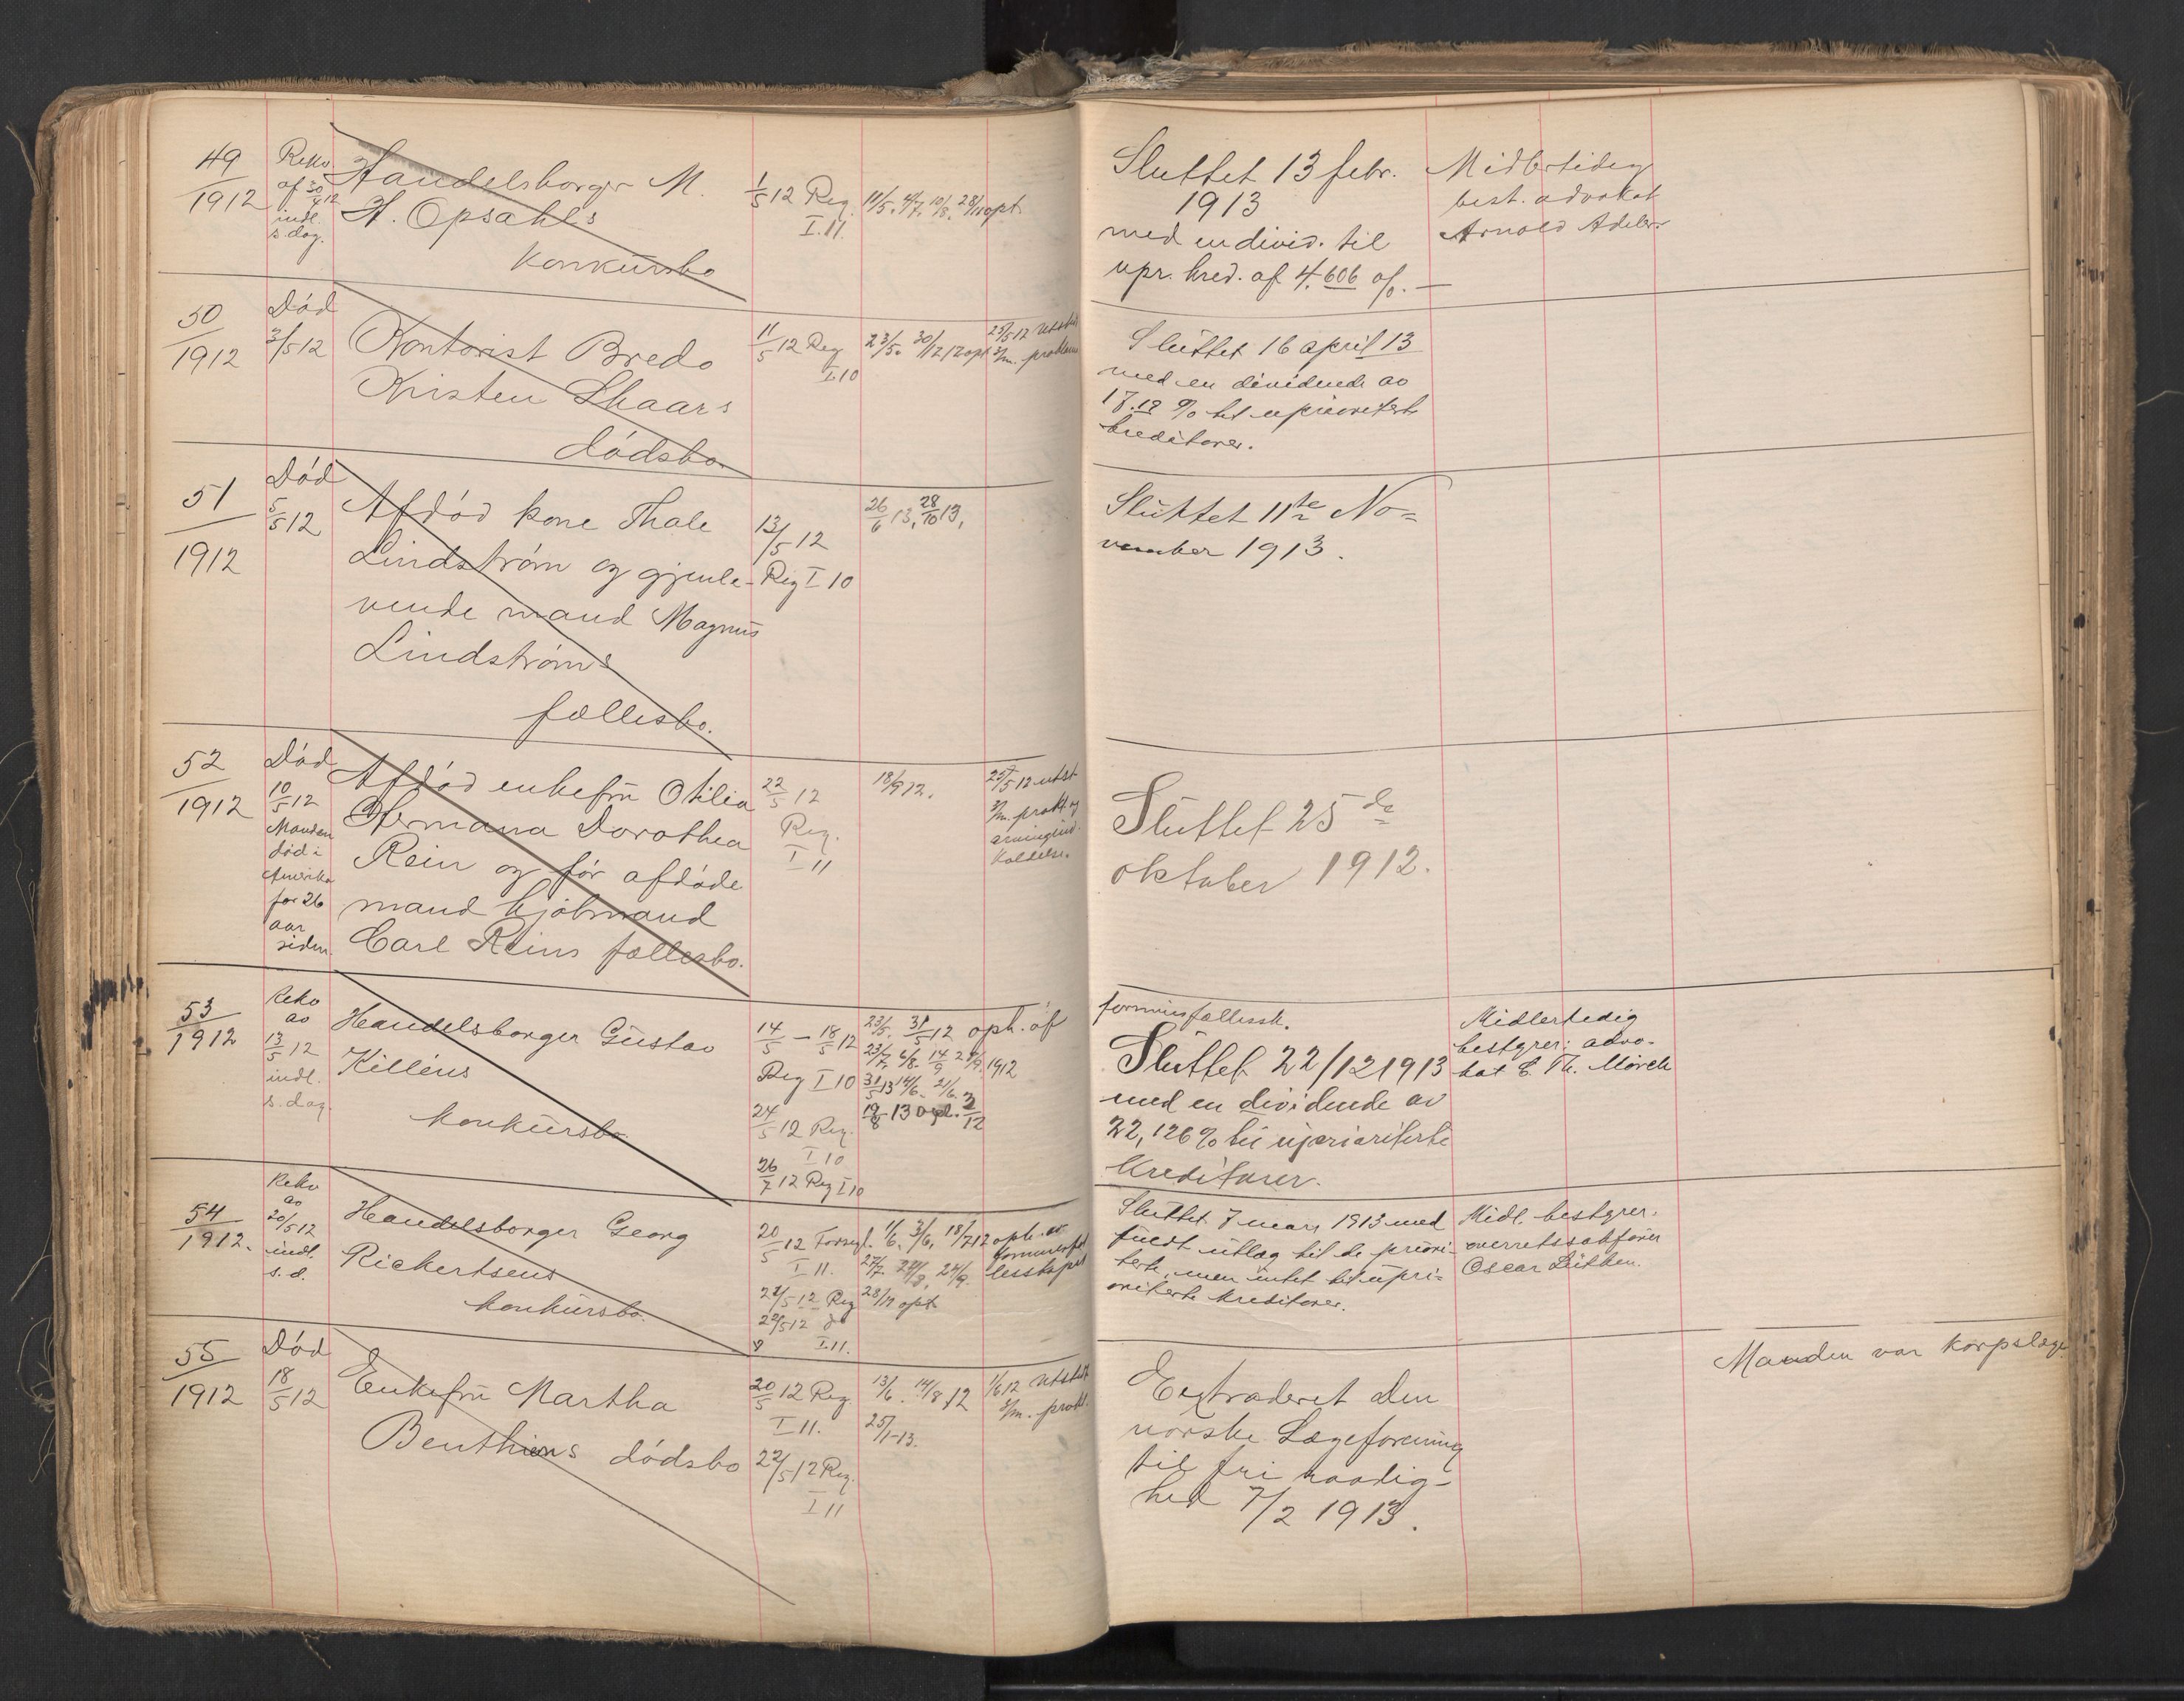 49
1912
Rekv.
af 30/4 12
indl.
s. dag.
Handelsborger M.
H. Opsahls
konkursbo
1/5 12 Reg.
I. 11.
11/5. 4/7. 10/8. 28/11 opt
Sluttet 13 febr.
1913
med en divid. til
upr. kred. af 4.606 o/o. —
Midlertidig
best. advokat
Arnold Adeler
50
1912
Död
3/5 12
Kontorist Bredo
Kristen Skaars
dödsbo
11/5 12 Reg
I. 10
23/5. 30/12 12 opt
25/5 12 utst
s/m. proklama
Sluttet 16 april 13
med en dividende av
17.12 % til upriorterte
kreditorer.
51
1912
Död
5/5 12
Afdöd kone Thale
Lindström og gjenle-
vende mand Magnus
Lindströms
fællesbo.
13/5 12
Reg I 10
26/6 13, 28/10 13,
Sluttet 11te No=
vember 1913.
52
1912
Död
10/5 12
Manden
död i
Amerika
for 26
aar
siden.
Afdöd enkefru Otilia
Hermana Dorothea
Rein og för afdöde
mand kjöbmand
Carl Reins fællesbo.
22/5 12
Reg.
I 11
18/9 12.
25/5 12 utst
s/m. prokl. og
arvingind
kaldelse.
Sluttet 25de
oktober 1912.
53
1912
Rekv
av
13/5 12
indl.
s. dag.
Handelsborger Gustav
Killéns
konkursbo
14/5 — 18/5 12
Reg I 10
24/5 12 Reg.
I 10
26/7 12 Reg I 10
23/5. 31/5 12 oph. af
23/7. 6/8. 14/9 24/9. 1912
31/5 13 14/6. 21/6.
19/8 - 13 Opl. 2/12
formuesfællessk.
Sluttet 22/12 1913
med en dividende av
22,126 % til upriorterte
Kreditorer.
Midlertidig
bestyrer: advo-
kat E. Th. Mörch
54
1912.
Rekv
av
20/5 12
indl.
s. d.
Handelsborger Georg
Rickertsens
konkursbo
20/5 12 Forsegl.
I 11.
22/5 12 Reg
22/5 12 do
I. 11.
1/6. 3/6, 18/7 12 oph. av
formuesfæl
lesskapet
27/7. 24/8. 24/9.
28/12 opt
Sluttet 7 mars 1913 med
fuldt utlæg til de priori-
terte, men intet til upri=
oriterte kreditorer.
Midl. bestyrer.
overretssakförer
Oscar Lütken.
55
1912
Död
18/5 12
Enkefru Martha
Benthiens dödsbo
20/5 12 Reg
I 11.
22/5 12 Reg.
I 11
13/6. 14/8 12
25/1 - 13.
1/6 12 utst
s/m. prokl.
Extraderet den
norske Lægeforening
til fri raadig-
hed 7/2 1913.
Manden var korpslæge